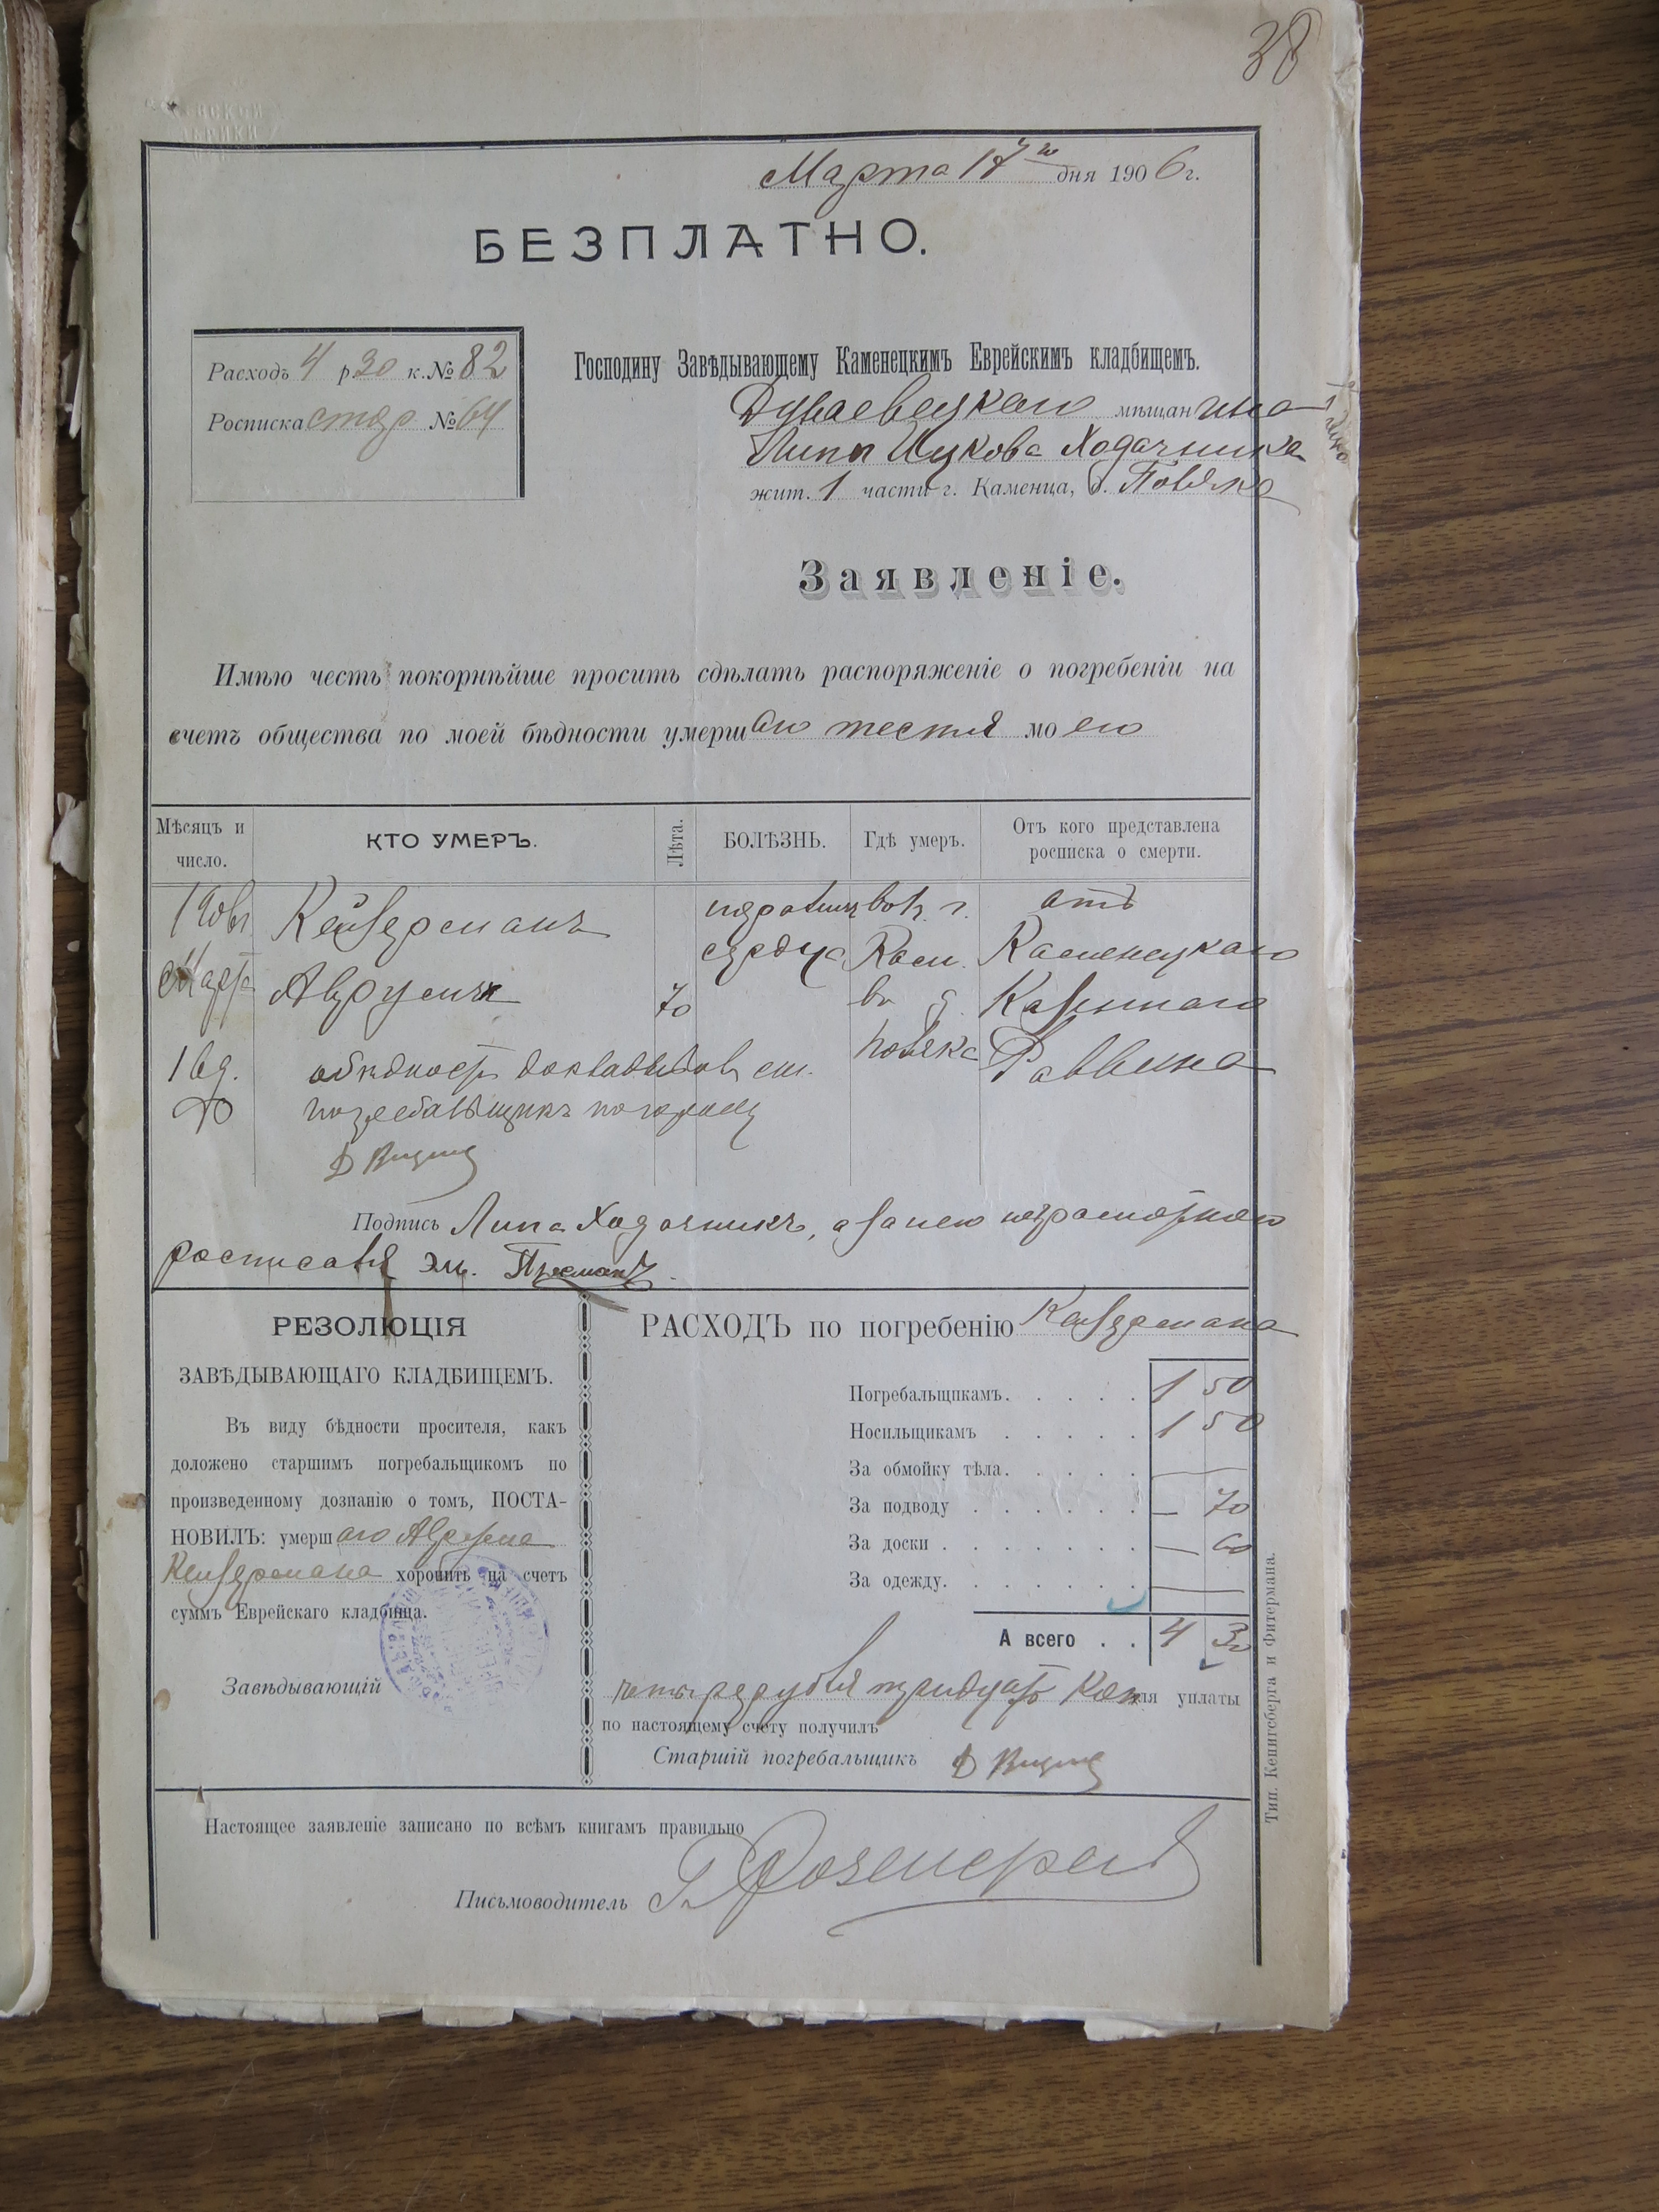 38
Марта 17го дня 1906 г.
БЕЗПЛАТНО.
Расходъ 4 р 30 к. № 82
Росписка стар № 64
Господину Завѣдывающему Каменецкимъ Еврейскимъ кладбищемъ.
Дунаевецкаго мѣщанина
Липы Ицкова Ходачника
жит. 1 части г. Каменца, д.
Заявленіе.
Имѣю честь покорнѣйше просить сдѣлать распоряженіе о погребеніи на
счетъ общества по моей бѣдности умершаго тестя моего
Мѣсяцъ и число.
КТО УМЕРЪ.
Лѣта.
БОЛѢЗНЬ.
Гдѣ умеръ.
Отъ кого представлена росписка о смерти.
Кейзерманъ
сердца
Кам.
отъ
Каменецкаго
Марта
70
въ д.
Казеннаго
Раввина
погребальщикъ
Подпись Липа Ходачникъ, а за него неграмотнаго
росписался Эл.
РЕЗОЛЮЦІЯ
ЗАВѢДЫВАЮЩАГО КЛАДБИЩЕМЪ.
Въ виду бѣдности просителя, какъ
доложено старшимъ погребальщикомъ по
произведенному дознанію о томъ, ПОСТА-
НОВИЛЪ: умершаго
Кейзермана хоронить на счетъ
суммъ Еврейскаго кладбища.
Завѣдывающій
РАСХОДЪ по погребенію Кейзермана
Погребальщикамъ. . . . . 1 50
Носильщикамъ . . . . . 1 50
За обмойку тѣла. . . . . —
За подводу . . . . . . — 70
За доски . . . . . . . — 60
За одежду. . . . . . . —
А всего . . 4 30
четыре рубля тридцать коп для уплаты
по настоящему счету получилъ
Старшій погребальщикъ
Настоящее заявленіе записано по всѣмъ книгамъ правильно
Письмоводитель
Тип. Кенигсберга и Фитермана.